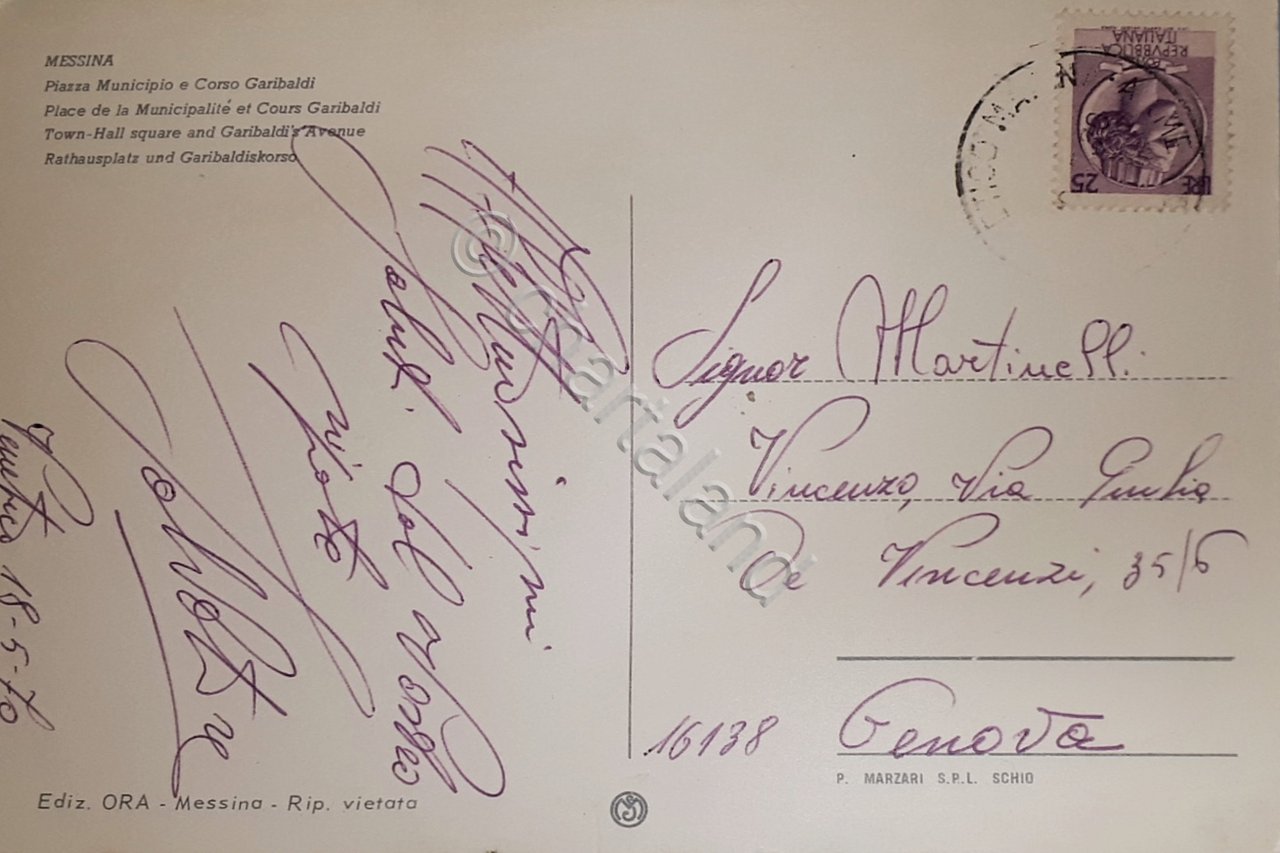 MESSINA
Piazza Municipio e Corso Garibaldi
Place de la Municipalité et Cours Garibaldi
Town-Hall square and Garibaldi's Avenue
Rathausplatz und Garibaldiskorso
Affettuosissimi
saluti dal vostro
nipote
Salvatore
18-5-70
REPVBBLICA
ITALIANA
LIRE 25
Signor Martinelli
Vincenzo, Via Giulio
De Vincenzi, 35/6
16138 Genova
P. MARZARI S.P.L. SCHIO
Ediz. ORA - Messina - Rip. vietata
© Chartaland